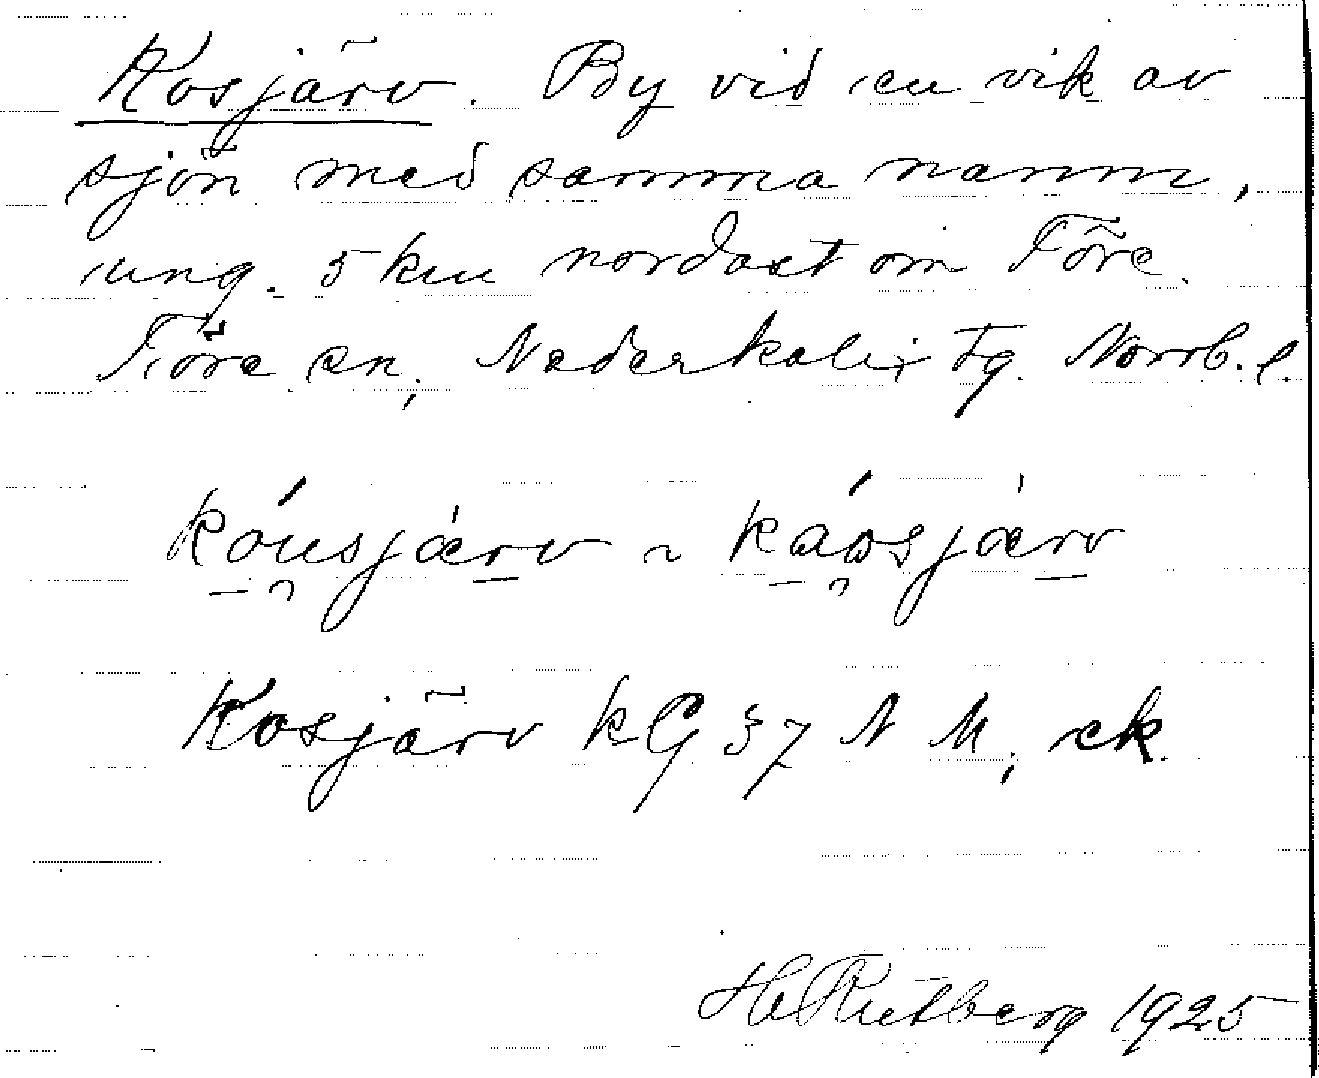 Kosjärv. By vid en vik av
sjön med samma namn,
ung. 5 km nordost om Töre.
Töre sn, Nederkalix tg. Norrb. l.
Kosjärv kG 37 N M, ek.
H Rutberg 1925